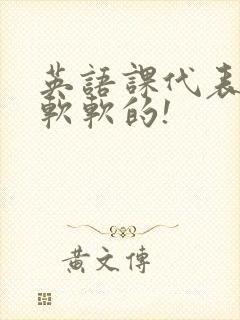 英語課代表
軟軟的!
黃文傳